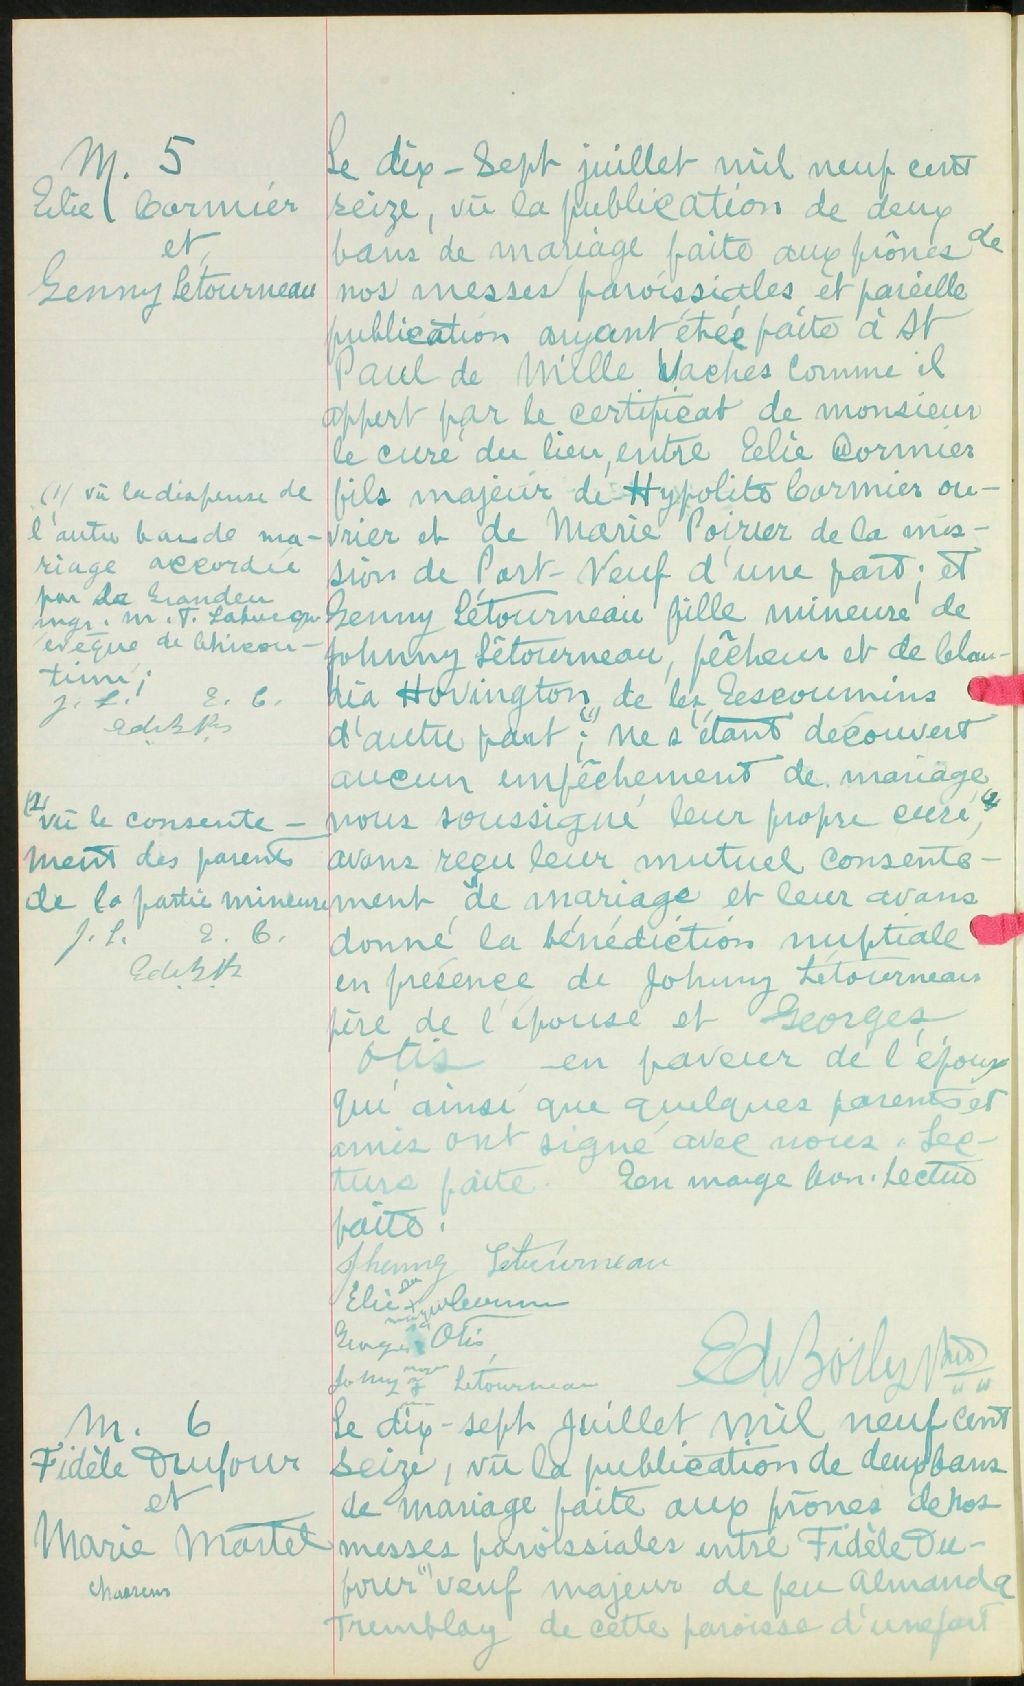 M. 5
Elie Cormier
et
Genny Létourneau
Le dix-Sept juillet mil neuf cent
seize, vû la publication de deux
bans de mariage faite aux prônes de
nos messes paroissiales et pareille
publication ayant étée faite à St
Paul de Mille Vaches comme il
appert par le certificat de monsieur
le curé du lieu, entre Eelie Cormier
fils majeur de Hypolite Cormier ou-
vrier et de Marie Poirier de la mis-
sion de Port-Neuf d'une part; et
Genny Létourneau fille mineure de
Johnny Létourneau, pêcheur et de Clau-
dia Hovington, de les Eescoumins
d'autre part; (1) ne s'étant découvert
aucun empêchement de mariage
nous soussigné leur propre curé, (2)
avons reçu leur mutuel consente-
ment de mariage et leur avons
donné la bénédiction nuptiale
en présence de Johnny Létourneau
père de l'épouse et Georges
Otis en faveur de l'époux
qui ainsi que quelques parents et
amis ont signé avec nous. Lec-
ture faite. Een marge bon. Lecture
faite.
(1) vû la dispense de
l'autre ban de ma-
riage accordée
par Sa Grandeu
mgr. M. T. Labrecque
évêque de Chicou-
timi;
J. L. E. C.
Ed. B. Ptr
(2) vû le consente-
ment des parents
de la partie mineure
J. L. E. C.
Ed. B. Ptr
Jhonny Létourneau
Elie
Georges Otis
Jonny Létourneau
Ed. Boily Ptre
M. 6
Fidèle Dufour
et
Marie Martel
Le dix-sept Juillet mil neuf cent
seize, vû la publication de deux bans
de mariage faite aux prônes de nos
messes paroissiales entre Fidèle Du-
four (1) veuf majeur de feu Almanda
Tremblay de cette paroisse d'une part